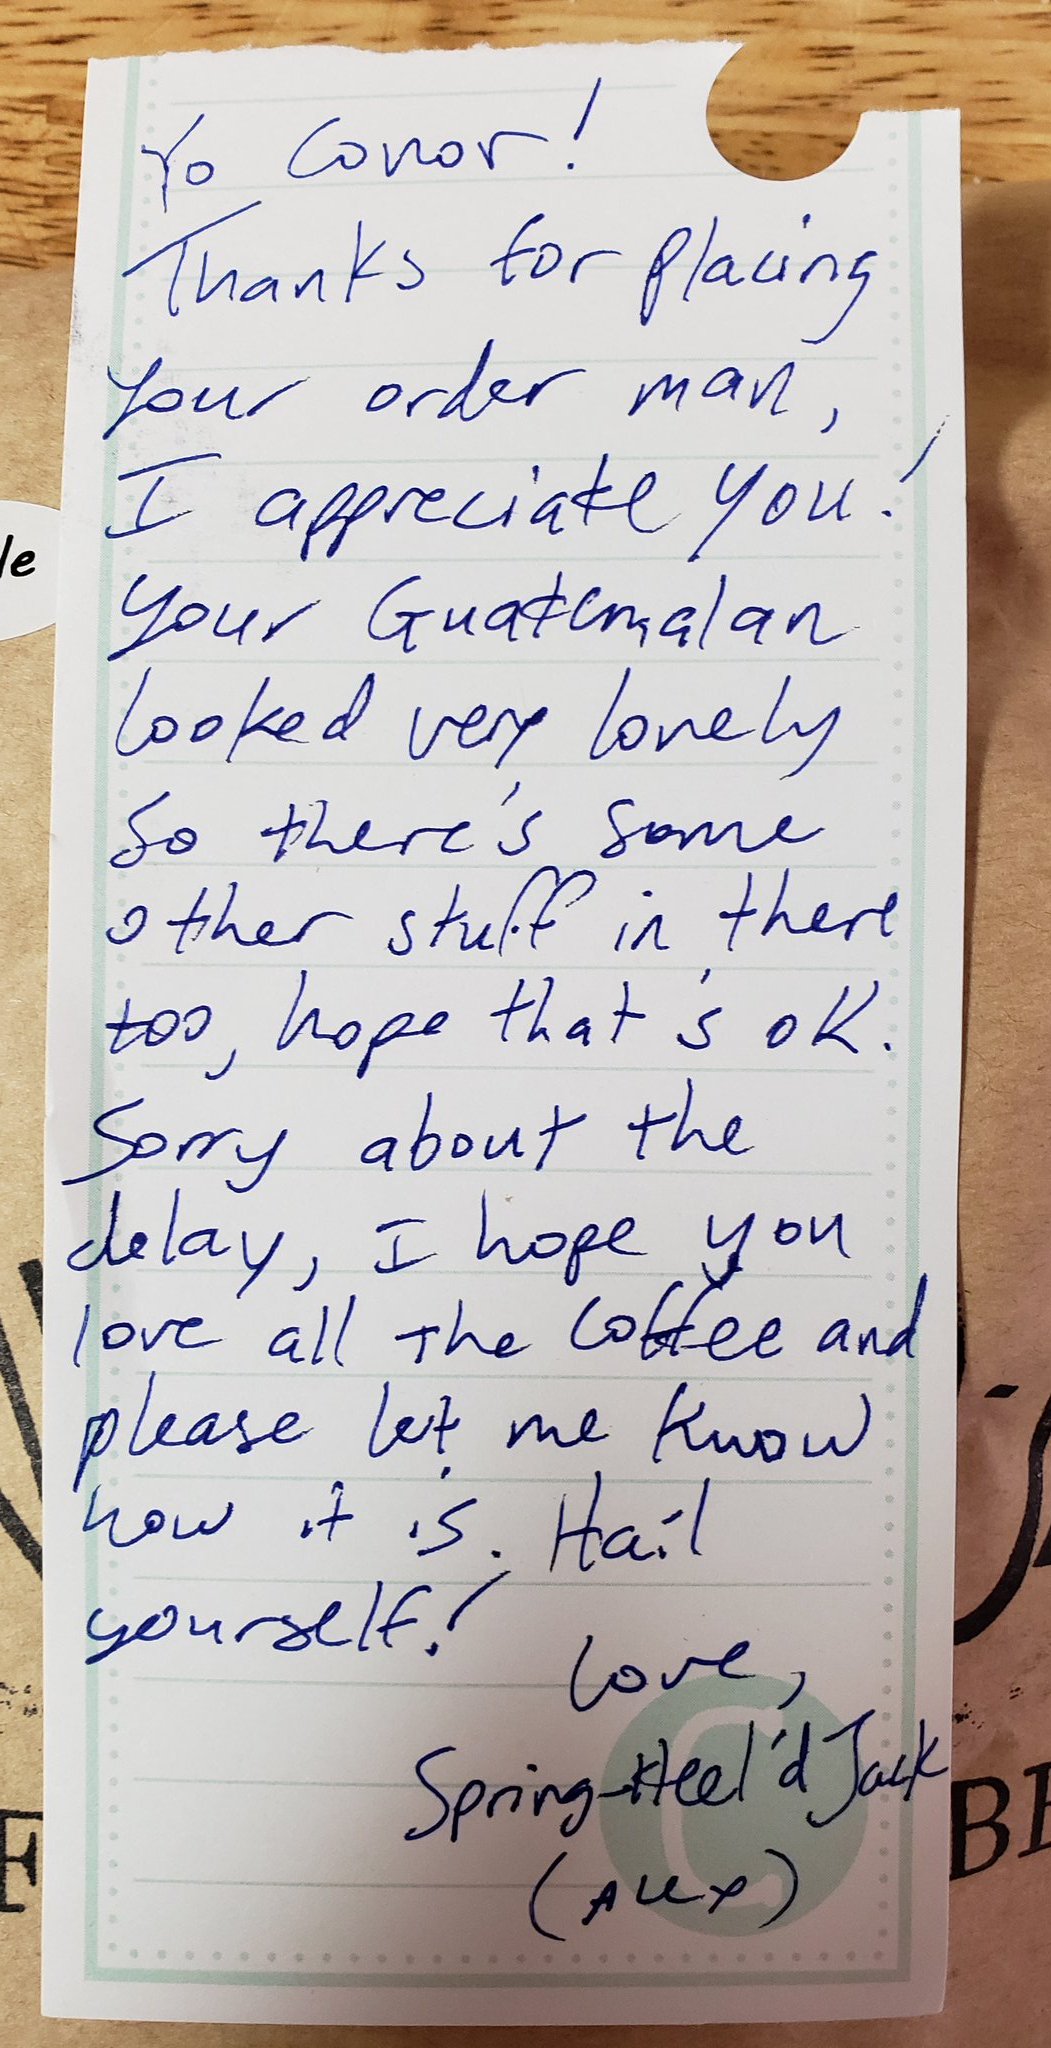 Yo Conor!
Thanks for placing
your order man,
I appreciate you!
Your Guatemalan
looked very lonely
so there's some
other stuff in there
too, hope that's ok.
Sorry about the
delay, I hope you
love all the coffee and
please let me know
how it is. Hail
yourself!
Love,
Spring-Heel'd Jack
(Alex)
le
F
BE